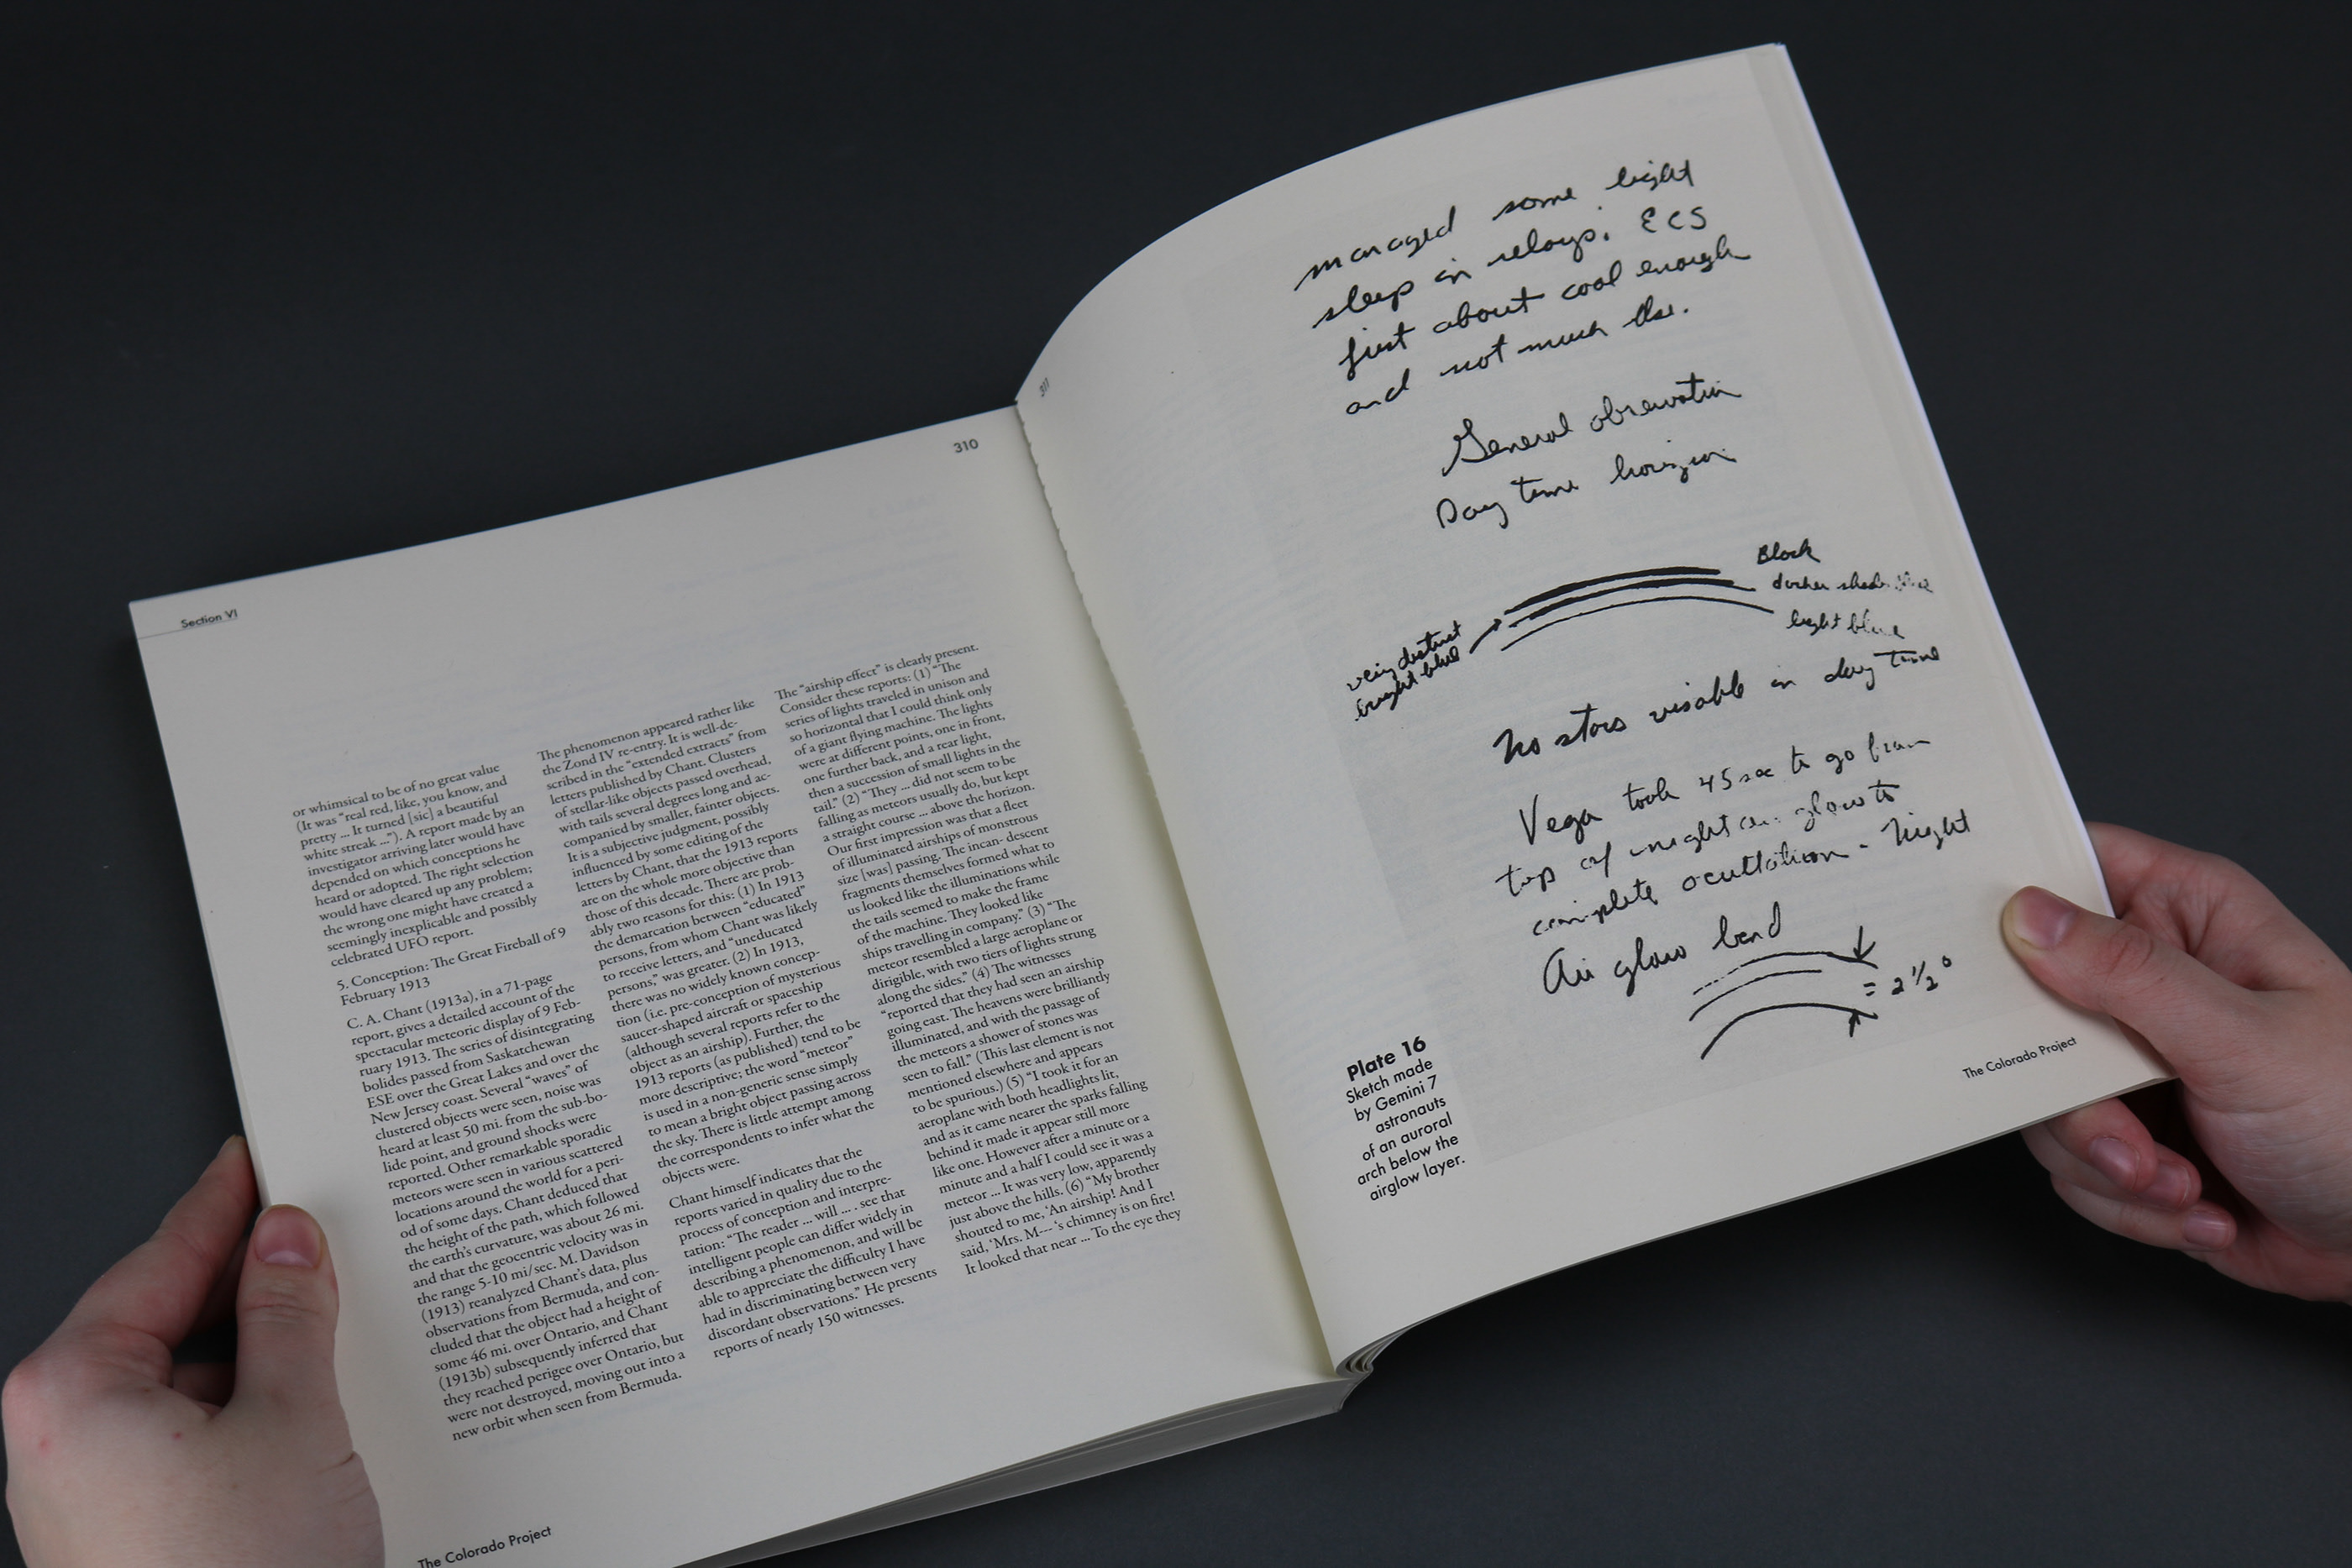 Section VI
310
or whimsical to be of no great value
(It was “real red, like, you know, and
pretty ... It turned [sic] a beautiful
white streak ...”). A report made by an
investigator arriving later would have
depended on which conceptions he
heard or adopted. The right selection
would have cleared up any problem;
the wrong one might have created a
seemingly inexplicable and possibly
celebrated UFO report.
5. Conception: The Great Fireball of 9
February 1913
C. A. Chant (1913a), in a 71-page
report, gives a detailed account of the
spectacular meteoric display of 9 Feb-
ruary 1913. The series of disintegrating
bolides passed from Saskatchewan
ESE over the Great Lakes and over the
New Jersey coast. Several “waves” of
clustered objects were seen, noise was
heard at least 50 mi. from the sub-bo-
lide point, and ground shocks were
reported. Other remarkable sporadic
meteors were seen in various scattered
locations around the world for a peri-
od of some days. Chant deduced that
the height of the path, which followed
the earth's curvature, was about 26 mi.
and that the geocentric velocity was in
the range 5-10 mi/sec. M. Davidson
(1913) reanalyzed Chant's data, plus
observations from Bermuda, and con-
cluded that the object had a height of
some 46 mi. over Ontario, and Chant
(1913b) subsequently inferred that
they reached perigee over Ontario, but
were not destroyed, moving out into a
new orbit when seen from Bermuda.
The phenomenon appeared rather like
the Zond IV re-entry. It is well-de-
scribed in the “extended extracts” from
letters published by Chant. Clusters
of stellar-like objects passed overhead,
with tails several degrees long and ac-
companied by smaller, fainter objects.
It is a subjective judgment, possibly
influenced by some editing of the
letters by Chant, that the 1913 reports
are on the whole more objective than
those of this decade. There are prob-
ably two reasons for this: (1) In 1913
the demarcation between “educated”
persons, from whom Chant was likely
to receive letters, and “uneducated
persons,” was greater. (2) In 1913,
there was no widely known concep-
tion (i.e. pre-conception of mysterious
saucer-shaped aircraft or spaceship
(although several reports refer to the
object as an airship). Further, the
1913 reports (as published) tend to be
more descriptive; the word “meteor”
is used in a non-generic sense simply
to mean a bright object passing across
the sky. There is little attempt among
the correspondents to infer what the
objects were.
Chant himself indicates that the
reports varied in quality due to the
process of conception and interpre-
tation: “The reader ... will ... . see that
intelligent people can differ widely in
describing a phenomenon, and will be
able to appreciate the difficulty I have
had in discriminating between very
discordant observations.” He presents
reports of nearly 150 witnesses.
The “airship effect” is clearly present.
Consider these reports: (1) “The
series of lights traveled in unison and
so horizontal that I could think only
of a giant flying machine. The lights
were at different points, one in front,
one further back, and a rear light,
then a succession of small lights in the
tail.” (2) “They ... did not seem to be
falling as meteors usually do, but kept
a straight course ... above the horizon.
Our first impression was that a fleet
of illuminated airships of monstrous
size [was] passing. The incan- descent
fragments themselves formed what to
us looked like the illuminations while
the tails seemed to make the frame
of the machine. They looked like
ships travelling in company.” (3) “The
meteor resembled a large aeroplane or
dirigible, with two tiers of lights strung
along the sides.” (4) The witnesses
“reported that they had seen an airship
going east. The heavens were brilliantly
illuminated, and with the passage of
the meteors a shower of stones was
seen to fall.” (This last element is not
mentioned elsewhere and appears
to be spurious.) (5) “I took it for an
aeroplane with both headlights lit,
and as it came nearer the sparks falling
behind it made it appear still more
like one. However after a minute or a
minute and a half I could see it was a
meteor ... It was very low, apparently
just above the hills. (6) “My brother
shouted to me, ‘An airship! And I
said, ‘Mrs. M--- ‘s chimney is on fire!
It looked that near ... To the eye they
The Colorado Project
311
managed some light
sleep in relays. ECS
just about cool enough
and not much else.
General observation
Day time horizon
Black
darker shade blue
light blue
very distinct
bright blue
No stars visible in day time
Vega took 45 sec to go from
top of night air glow to
complete occultation - Night
Air glow band
= 2 1/2°
Plate 16
Sketch made
by Gemini 7
astronauts
of an auroral
arch below the
airglow layer.
The Colorado Project